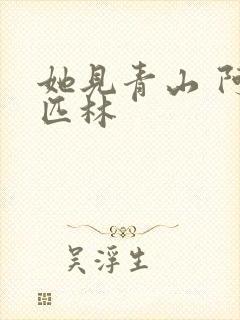 她见青山 阿
匹林
吴浮生